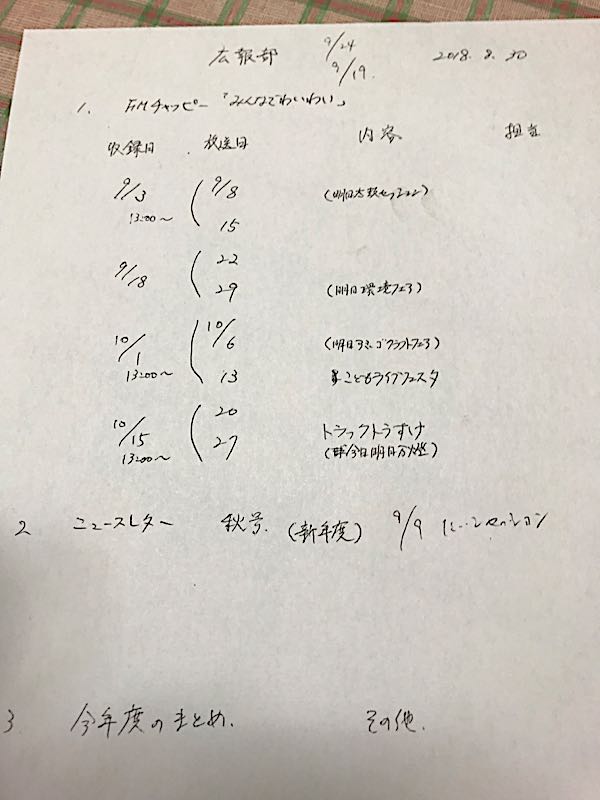 広報部 9/24 2018. 8. 30
9/19.
1. FMチャッピー「みんなでわいわい」
収録日 放送日 内容 担当
9/3 9/8 (明日 セッション)
13:00〜 15
9/18 22
29 (明日環境フェア)
10/1 10/6 (明日 クラフトフェア)
13:00〜 13 こどもライブフェスタ
10/15 20 トラックトラすけ
13:00〜 27 (昨今日明日万燈)
2 ニュースレター 秋号. (新年度) 9/9 セッション
3. 今年度のまとめ. その他.